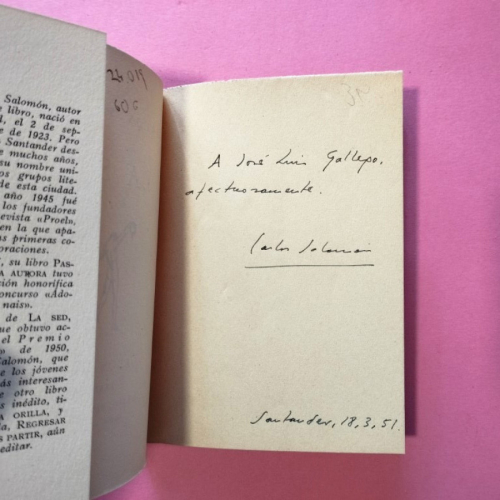 Salomón, autor
e libro, nació en
l, el 2 de sep-
e de 1923. Pero
Santander des-
e muchos años,
su nombre uni-
os grupos lite-
de esta ciudad.
año 1945 fué
los fundadores
evista «Proel»,
en la que apa-
s primeras co-
oraciones.
, su libro PAS-
A AURORA tuvo
ción honorífica
oncurso «Ado-
nais».
de LA SED,
ue obtuvo ac-
el Premio
de 1950,
Salomón, que
e los jóvenes
ás interesan-
e otro libro
s inédito, ti-
A ORILLA, y
la, REGRESAR
S PARTIR, aún
editar.
26.019
60 c
A José Luis Gallego,
afectuosamente.
Carlos Salomón
Santander, 18, 3, 51.